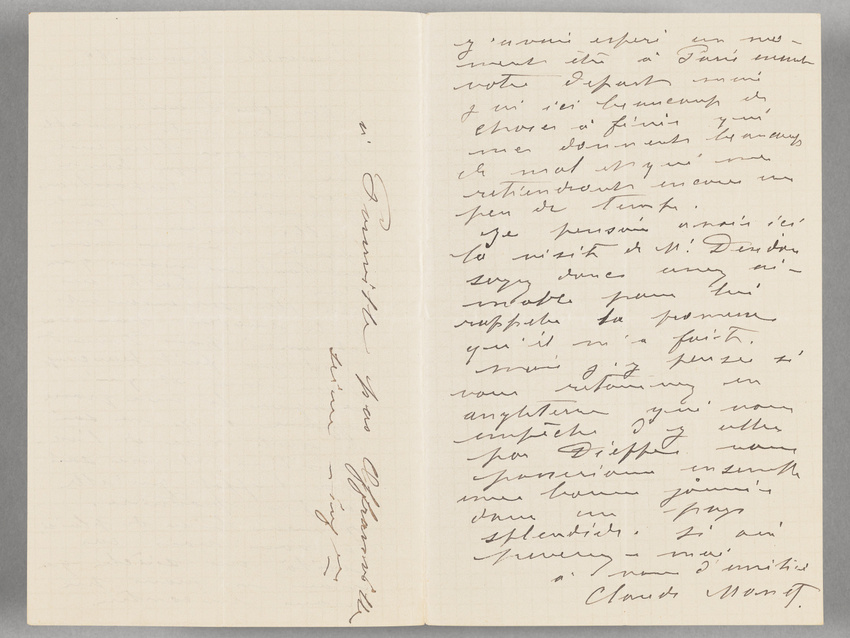 à Pourville par Offranville
Seine inf re
j'avais espéré un mo-
ment être à Paris avant
votre départ mais
j'ai ici beaucoup de
choses à finir qui
me donnent beaucoup
de mal et qui me
retiendront encore un
peu de temps.
Je pensais avoir ici
la visite de Mr. Deudon
soyez donc assez ai-
mable pour lui
rappeler la promesse
qu'il m'a faite.
Mais j'y pense si
vous retournez en
angleterre qui vous
empêche d'y aller
par Dieppe nous
passerions ensemble
une bonne journée
dans un pays
splendide. Si oui
prévenez-moi
à vous d'amitié
Claude Monet.